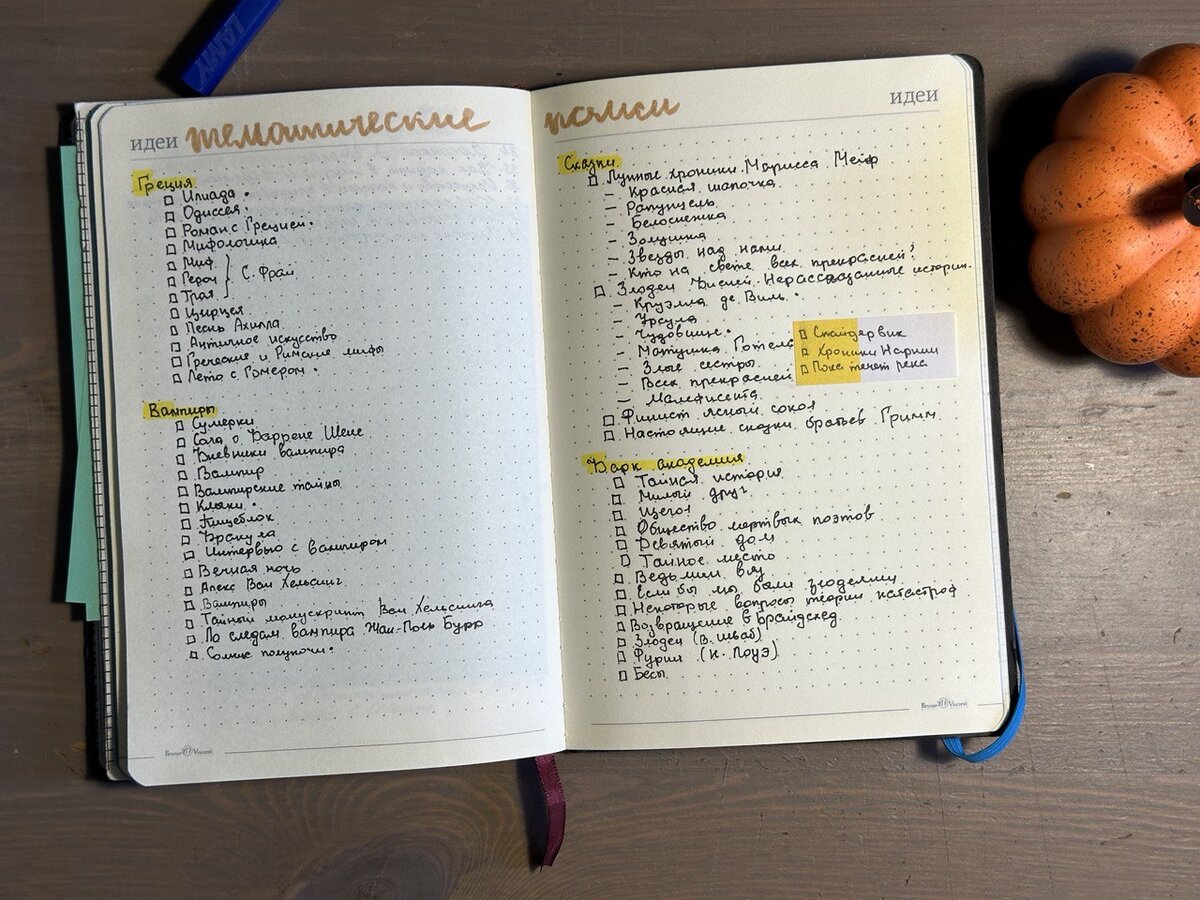 LAMY
идеи тематические
Греция
Илиада
Одиссея
Роман с Грецией
Мифологика
Миф
Герои
Троя
С. Фрай
Цирцея
Песнь Ахилла
Античное искусство
Греческие и Римские мифы
Лето с Гомером
Вампиры
Сумерки
Сага о Даррене Шене
Дневники вампира
Вампир
Вампирские тайны
Клыки
Пищеблок
Дракула
Интервью с вампиром
Вечная ночь
Алекс Ван Хельсинг
Вампиры
Тайный манускрипт Ван Хельсинга
По следам вампира Жан-Поль Бурр
Солнце полуночи
Bruno Visconti
полки идеи
Сказки
Лунные хроники Марисса Мейер
– Красная шапочка
– Рапунцель
– Белоснежка
– Золушка
– Звезды над нами
– Кто на свете всех прекрасней?
Злодеи Дисней. Нерассказанные истории.
– Круэлла де Виль
– Урсула
– Чудовище
– Матушка Готель
– Злые сестры
– Всех прекрасней
– Малефисента
Спайдервик
Хроники Нарнии
Пока течет река
Финист ясный сокол
Настоящие сказки братьев Гримм
Дарк академия
Тайная история
Милый друг
Щегол
Общество мертвых поэтов
Девятый дом
Тайное место
Ведьмин вяз
Если бы мы были злодеями
Некоторые вопросы теории катастроф
Возвращение в Брайдсхед
Злодеи (В. Шваб)
Фурии (К. Лоуэ)
Бесы
Bruno Visconti